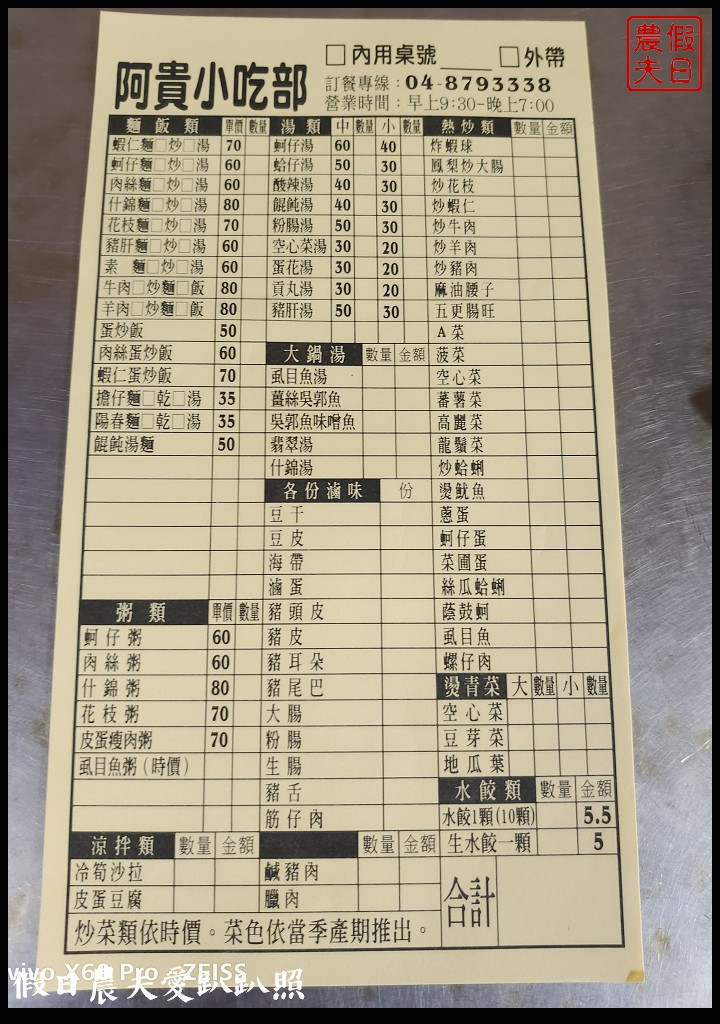 阿貴小吃部
□內用桌號____ □外帶
訂餐專線：04-8793338
營業時間：早上9:30-晚上7:00
假日農夫
麵飯類 單價 數量
蝦仁麵□炒□湯 70
蚵仔麵□炒□湯 60
肉絲麵□炒□湯 60
什錦麵□炒□湯 80
花枝麵□炒□湯 70
豬肝麵□炒□湯 60
素 麵□炒□湯 60
牛肉□炒麵□飯 80
羊肉□炒麵□飯 80
蛋炒飯 50
肉絲蛋炒飯 60
蝦仁蛋炒飯 70
擔仔麵□乾□湯 35
陽春麵□乾□湯 35
餛飩湯麵 50
粥類 單價 數量
蚵仔粥 60
肉絲粥 60
什錦粥 80
花枝粥 70
皮蛋瘦肉粥 70
虱目魚粥(時價)
涼拌類 數量 金額
冷筍沙拉
皮蛋豆腐
湯類 中 數量 小 數量
蚵仔湯 60 40
蛤仔湯 50 30
酸辣湯 40 30
餛飩湯 40 30
粉腸湯 50 30
空心菜湯 30 20
蛋花湯 30 20
貢丸湯 30 20
豬肝湯 50 30
大鍋湯 數量 金額
虱目魚湯
薑絲吳郭魚
吳郭魚味噌魚
翡翠湯
什錦湯
各份滷味 份
豆干
豆皮
海帶
滷蛋
豬頭皮
豬皮
豬耳朵
豬尾巴
大腸
粉腸
生腸
豬舌
筋仔肉
數量 金額
鹹豬肉
臘肉
熱炒類 數量 金額
炸蝦球
鳳梨炒大腸
炒花枝
炒蝦仁
炒牛肉
炒羊肉
炒豬肉
麻油腰子
五更腸旺
A菜
菠菜
空心菜
蕃薯菜
高麗菜
龍鬚菜
炒蛤蜊
燙魷魚
蔥蛋
蚵仔蛋
菜圃蛋
絲瓜蛤蜊
蔭鼓蚵
虱目魚
螺仔肉
燙青菜 大 數量 小 數量
空心菜
豆芽菜
地瓜葉
水餃類 數量 金額
水餃1顆(10顆) 5.5
生水餃一顆 5
合計
炒菜類依時價。菜色依當季產期推出。
vivo X60 Pro ZEISS
假日農夫愛趴趴照